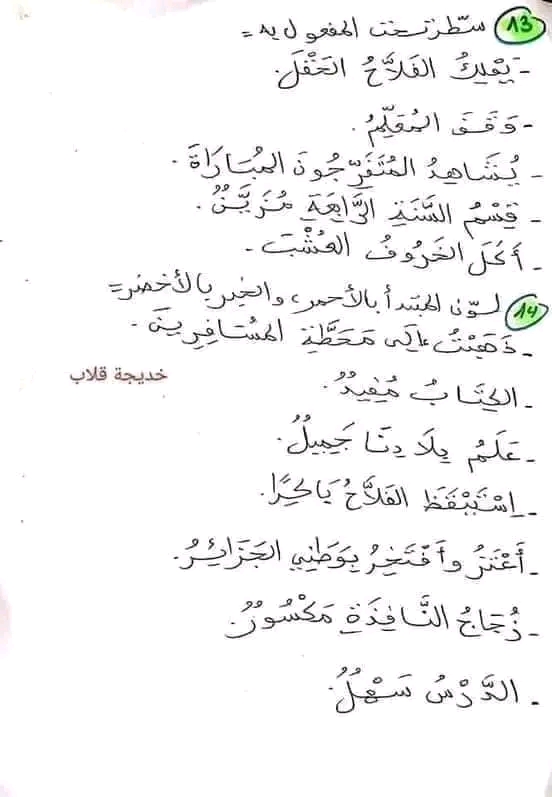 13 سطر تحت المفعول به =
- يَمْلِكُ الفَلاَّحُ الحَقْلَ.
- وَقَفَ المُعَلِّمُ.
- يُشَاهِدُ المُتَفَرِّجُونَ المُبَارَاةَ.
- قِسْمُ السَّنَةِ الرَّابِعَةِ مُزَيَّنٌ.
- أَكَلَ الخَرُوفُ العُشْبَ.
14 لوّن المبتدأ بالأحمر، والخبر بالأخضر =
- ذَهَبْتُ إِلَى مَحَطَّةِ المُسَافِرِينَ.
- الكِتَابُ مُفِيدٌ.
خديجة قلاب
- عَلَمُ بِلاَدِنَا جَمِيلٌ.
- اِسْتَيْقَظَ الفَلاَّحُ بَاكِرًا.
- أَعْتَزُّ وأَفْتَخِرُ بِوَطَنِي الجَزَائِرُ.
- زُجَاجُ النَّافِذَةِ مَكْسُورٌ.
- الدَّرْسُ سَهْلٌ.